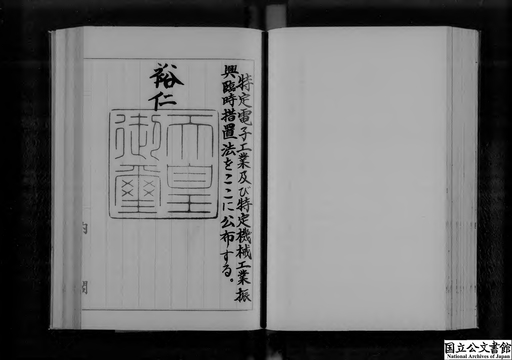 特定電子工業及び特定機械工業振
興臨時措置法をここに公布する。
裕仁
天皇
御璽
内閣
国立公文書館
National Archives of Japan